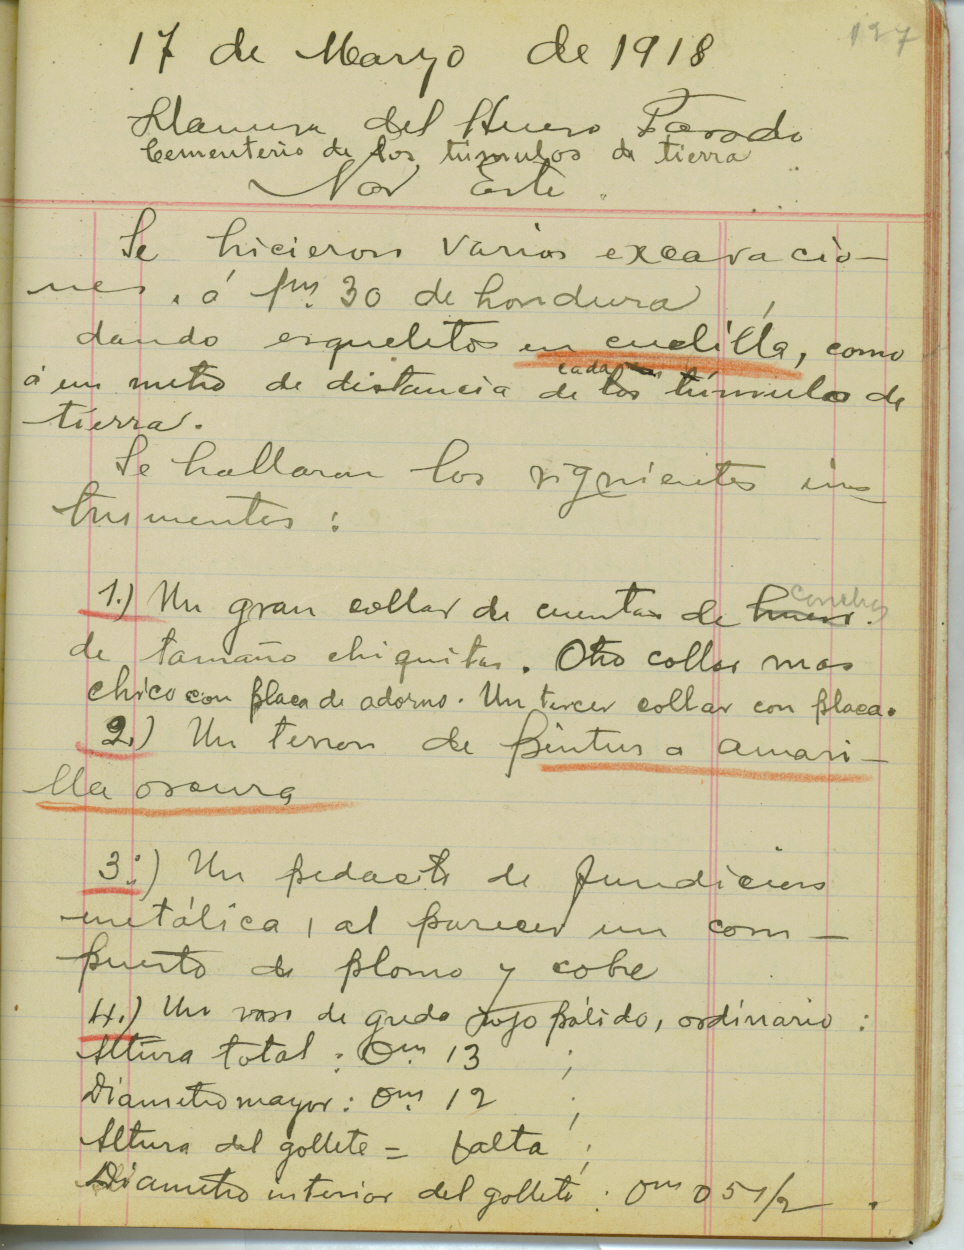 127
17 de Marzo de 1918
Llanura del Hueso Parado
Cementerio de los túmulos de tierra
Nor Este.
Se hicieron varias excavacio-
nes, á 1m. 30 de hondura,
dando esqueletos en cuclilla, como
á un metro de distancia de cada los túmulo de
tierra.
Se hallaron los siguientes ins
trumentos:
1.) Un gran collar de cuentas de hueso. conchas
de tamaño chiquitas. Otro collar mas
chico con placa de adorno. Un tercer collar con placa.
2.) Un terron de pintura amari-
lla oscura
3.) Un pedacito de fundicion
metálica, al parecer un com-
puesto de plomo y cobre
4.) Un vaso de greda rojo pálido, ordinario:
Altura total: 0m. 13;
Diametro mayor: 0m. 12;
Altura del gollete = falta;
Diametro interior del gollete: 0m 0 5 1/2.